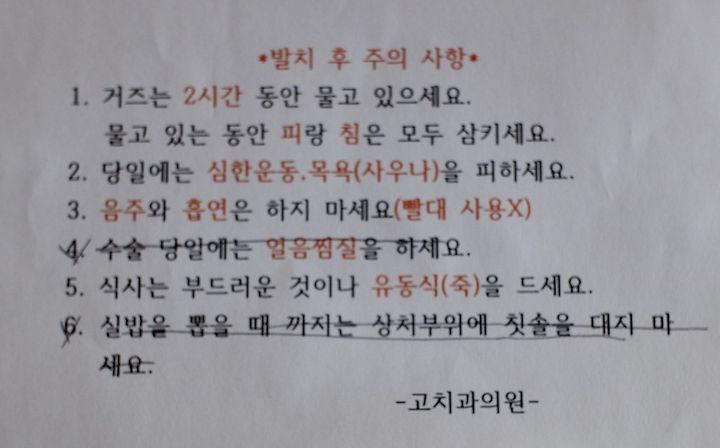 *발치 후 주의 사항*
1. 거즈는 2시간 동안 물고 있으세요.
물고 있는 동안 피랑 침은 모두 삼키세요.
2. 당일에는 심한운동.목욕(사우나)을 피하세요.
3. 음주와 흡연은 하지 마세요(빨대 사용X)
4. 수술 당일에는 얼음찜질을 하세요.
5. 식사는 부드러운 것이나 유동식(죽)을 드세요.
6. 실밥을 뽑을 때 까지는 상처부위에 칫솔을 대지 마
세요.
-고치과의원-